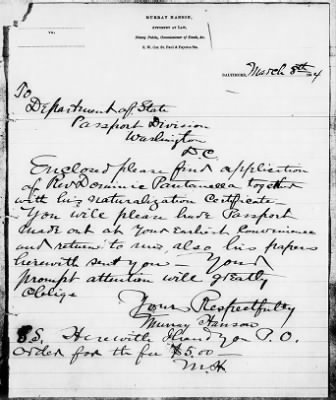 MURRAY HANSON,
ATTORNEY AT LAW,
Notary Public, Commissioner of Deeds, &c.
S. W. Cor. St. Paul & Fayette Sts.
VS.
BALTIMORE, March 8th 
To
Department of State
Passport Division
Washington
D.C.
Enclosed please find application
of Rev Dominic Pantanella together
with his Naturalization Certificate.
You will please have Passport
made out at your Earliest Convenience
and return to me, also his papers
herewith sent you — Your
prompt attention will greatly
Oblige
Your Respectfully
Murray Hanson
P.S. Herewith I hand you P. O.
Order for the fee $5.00 —
M H